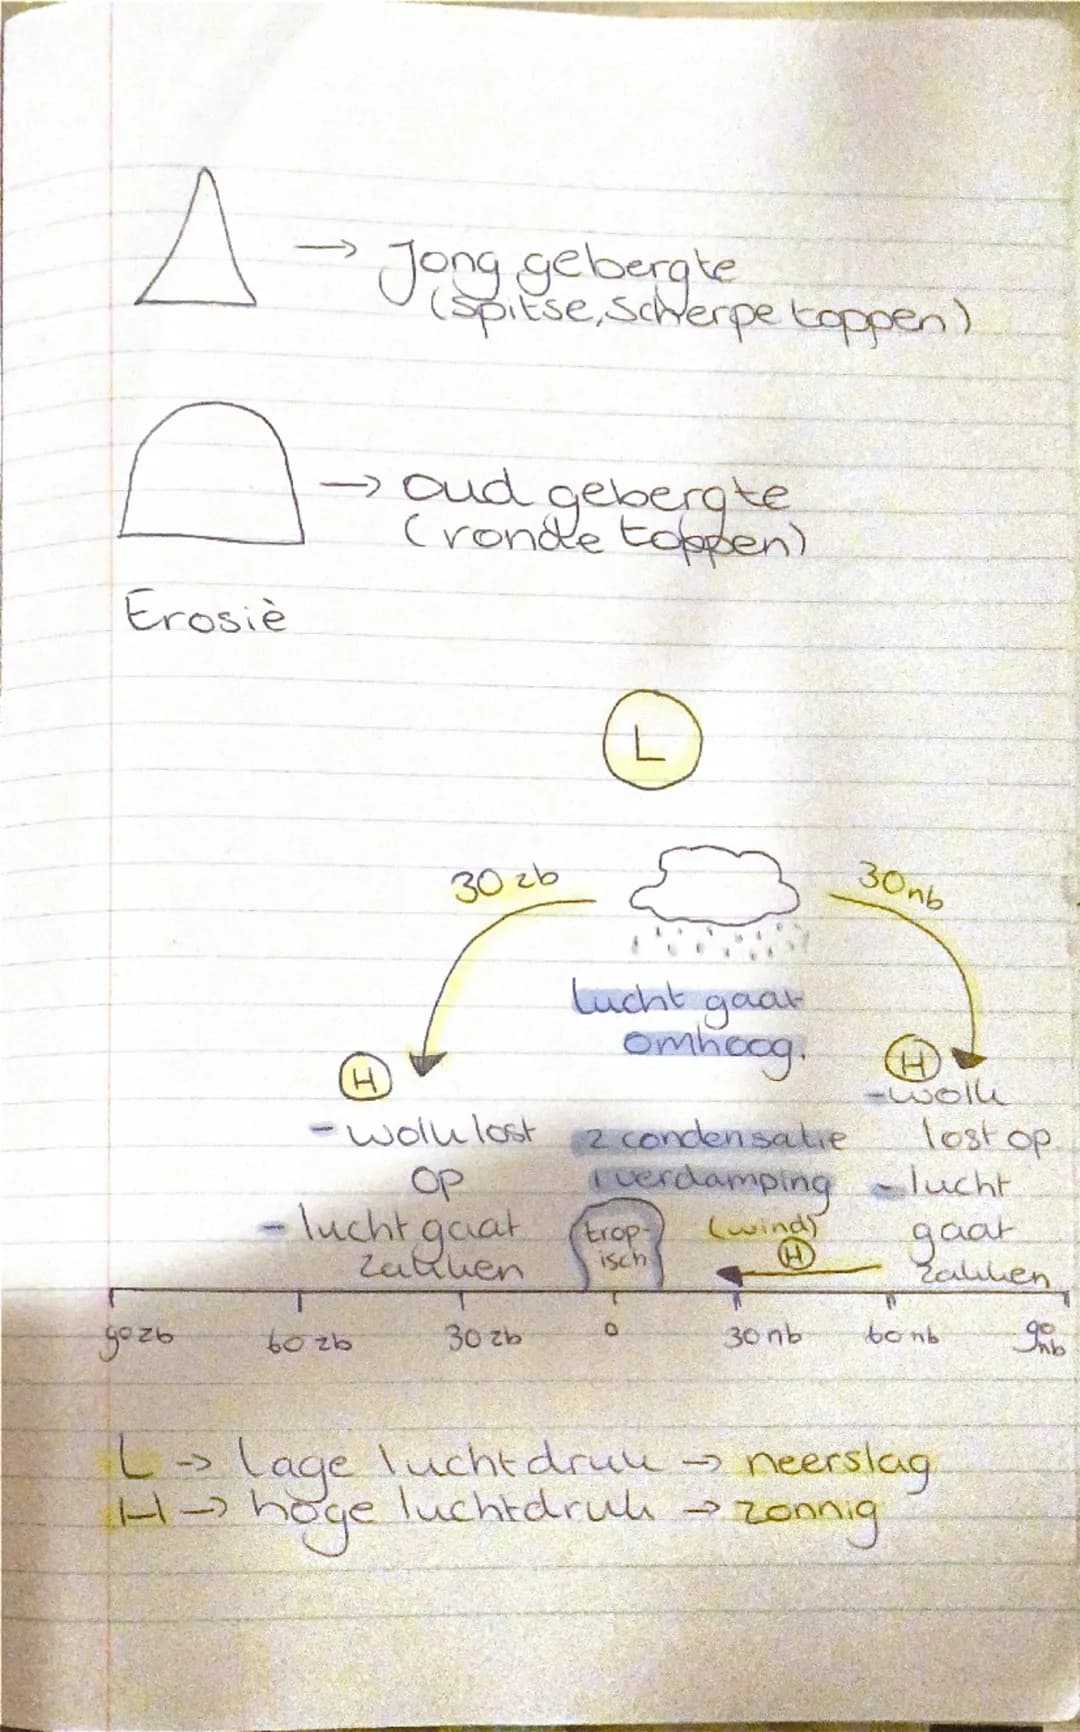 → Jong gebergte
(spitse, scherpe toppen)
→ oud gebergte
(ronde toppen)
Erosiè
L
30 zb
30nb
lucht gaat
omhoog.
H
H
- wolk lost
op
- lucht gaat
zakken
2 condensatie
1 verdamping
trop-
isch
(wind)
H
- wolk
lost op
- lucht
gaat
zakken
90 zb
60 zb
30 zb
0
30 nb
60 nb
90
nb
L → lage luchtdruk → neerslag
H → hoge luchtdruk → zonnig